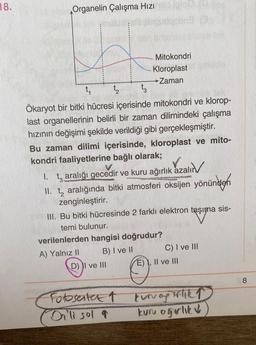 18.
Organelin Çalışma Hızı
Mitokondri
Kloroplast
Zaman
t₁ t₂ t₃
Ökaryot bir bitki hücresi içerisinde mitokondri ve klorop-
last organellerinin belirli bir zaman dilimindeki çalışma
hızının değişimi şekilde verildiği gibi gerçekleşmiştir.
Bu zaman dilimi içerisinde, kloroplast ve mito-
kondri faaliyetlerine bağlı olarak;
I. t₃ aralığı gecedir ve kuru ağırlık azalır.
II. t₂ aralığında bitki atmosferi oksijen yönünden
zenginleştirir.
III. Bu bitki hücresinde 2 farklı elektron taşıma sis-
temi bulunur.
verilenlerden hangisi doğrudur?
A) Yalnız II B) I ve II C) I ve III
D) II ve III E) I, II ve III
8
Fotosentez ↑ kuru ağırlık ↑
On'li sol ↑ kuru ağırlık ↓